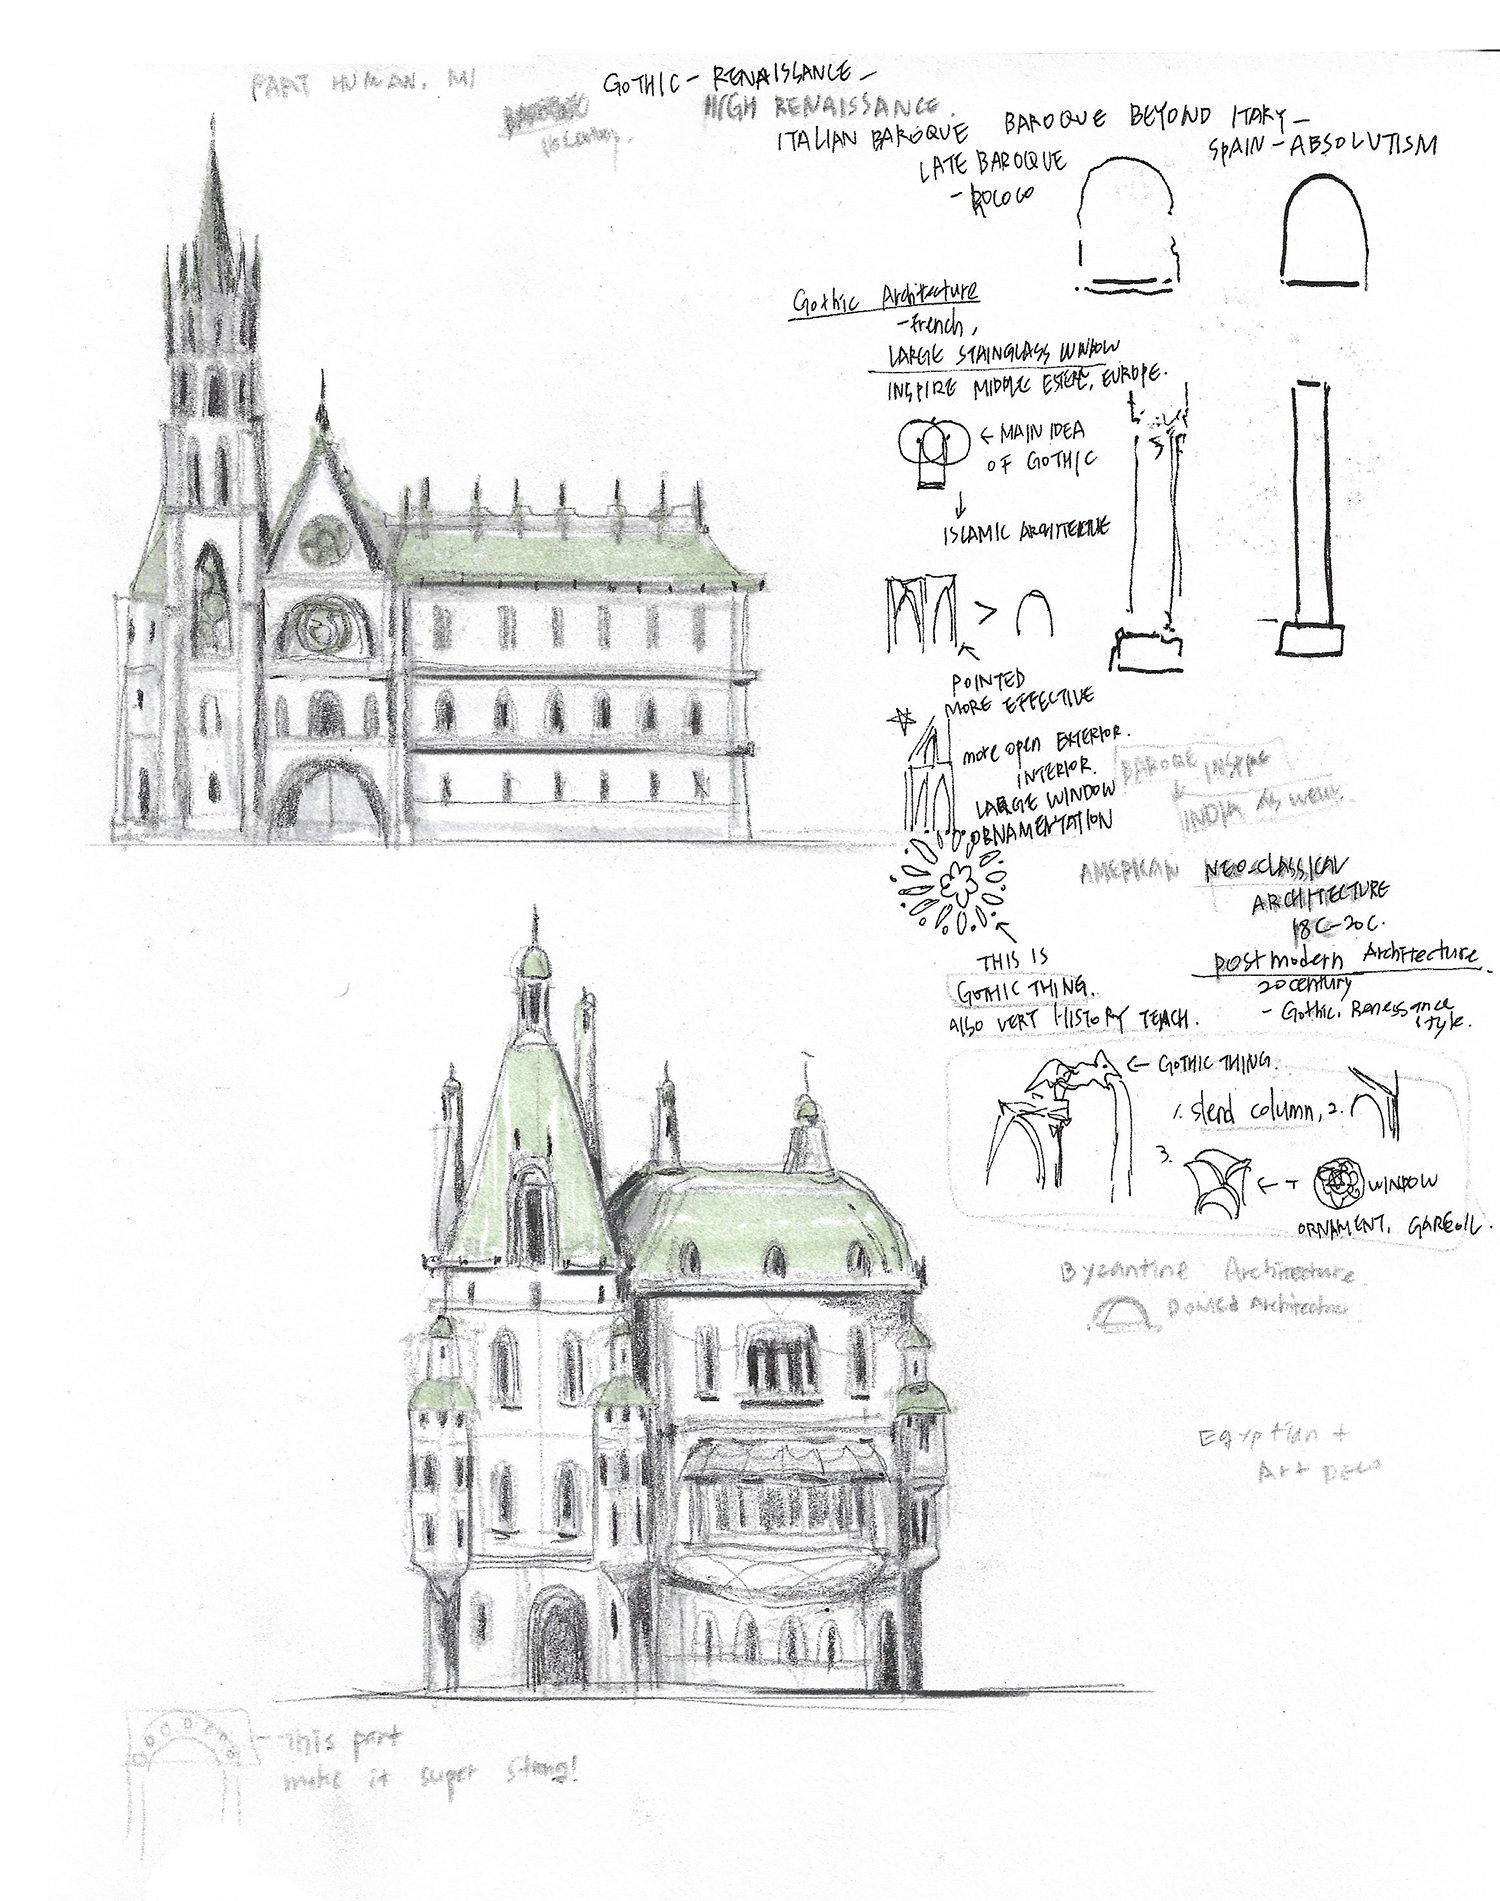 PART HUMAN. M1
GOTHIC - RENAISSANCE -
HIGH RENAISSANCE.
ITALIAN BAROQUE
BAROQUE BEYOND ITARY -
SPAIN - ABSOLUTISM
LATE BAROQUE
- ROCOCO
Gothic Architecture
- French,
LARGE STAINGLASS WINDOW
INSPIRE MIDDLE ESTERN, EUROPE.
← MAIN IDEA
OF GOTHIC
↓
ISLAMIC ARCHITERTIVE
>
POINTED
MORE EFFECTIVE
more open EXTERIOR.
INTERIOR.
LARGE WINDOW
ORNAMENTATION
BAROQE INSPIRE
INDIA AS WELL.
AMERICAN NEO-CLASSICAL
ARCHITECTURE
18C-20C.
postmodern Architecture
20century
- Gothic, Renessance
style.
THIS IS
GOTHIC THING.
Also VERT HISTORY TEACH.
← GOTHIC THING.
1. slend column, 2.
3.
← + WINDOW
ORNAMENT, GAREOIL.
Byzantine Architecture
DOMED Architecture
Egyptian +
Art DECO
This part
make it super strong!